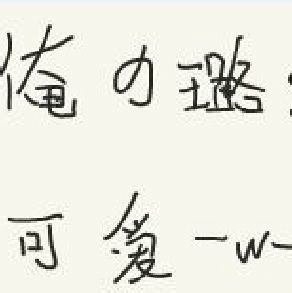 俺の璐
可爱-w-